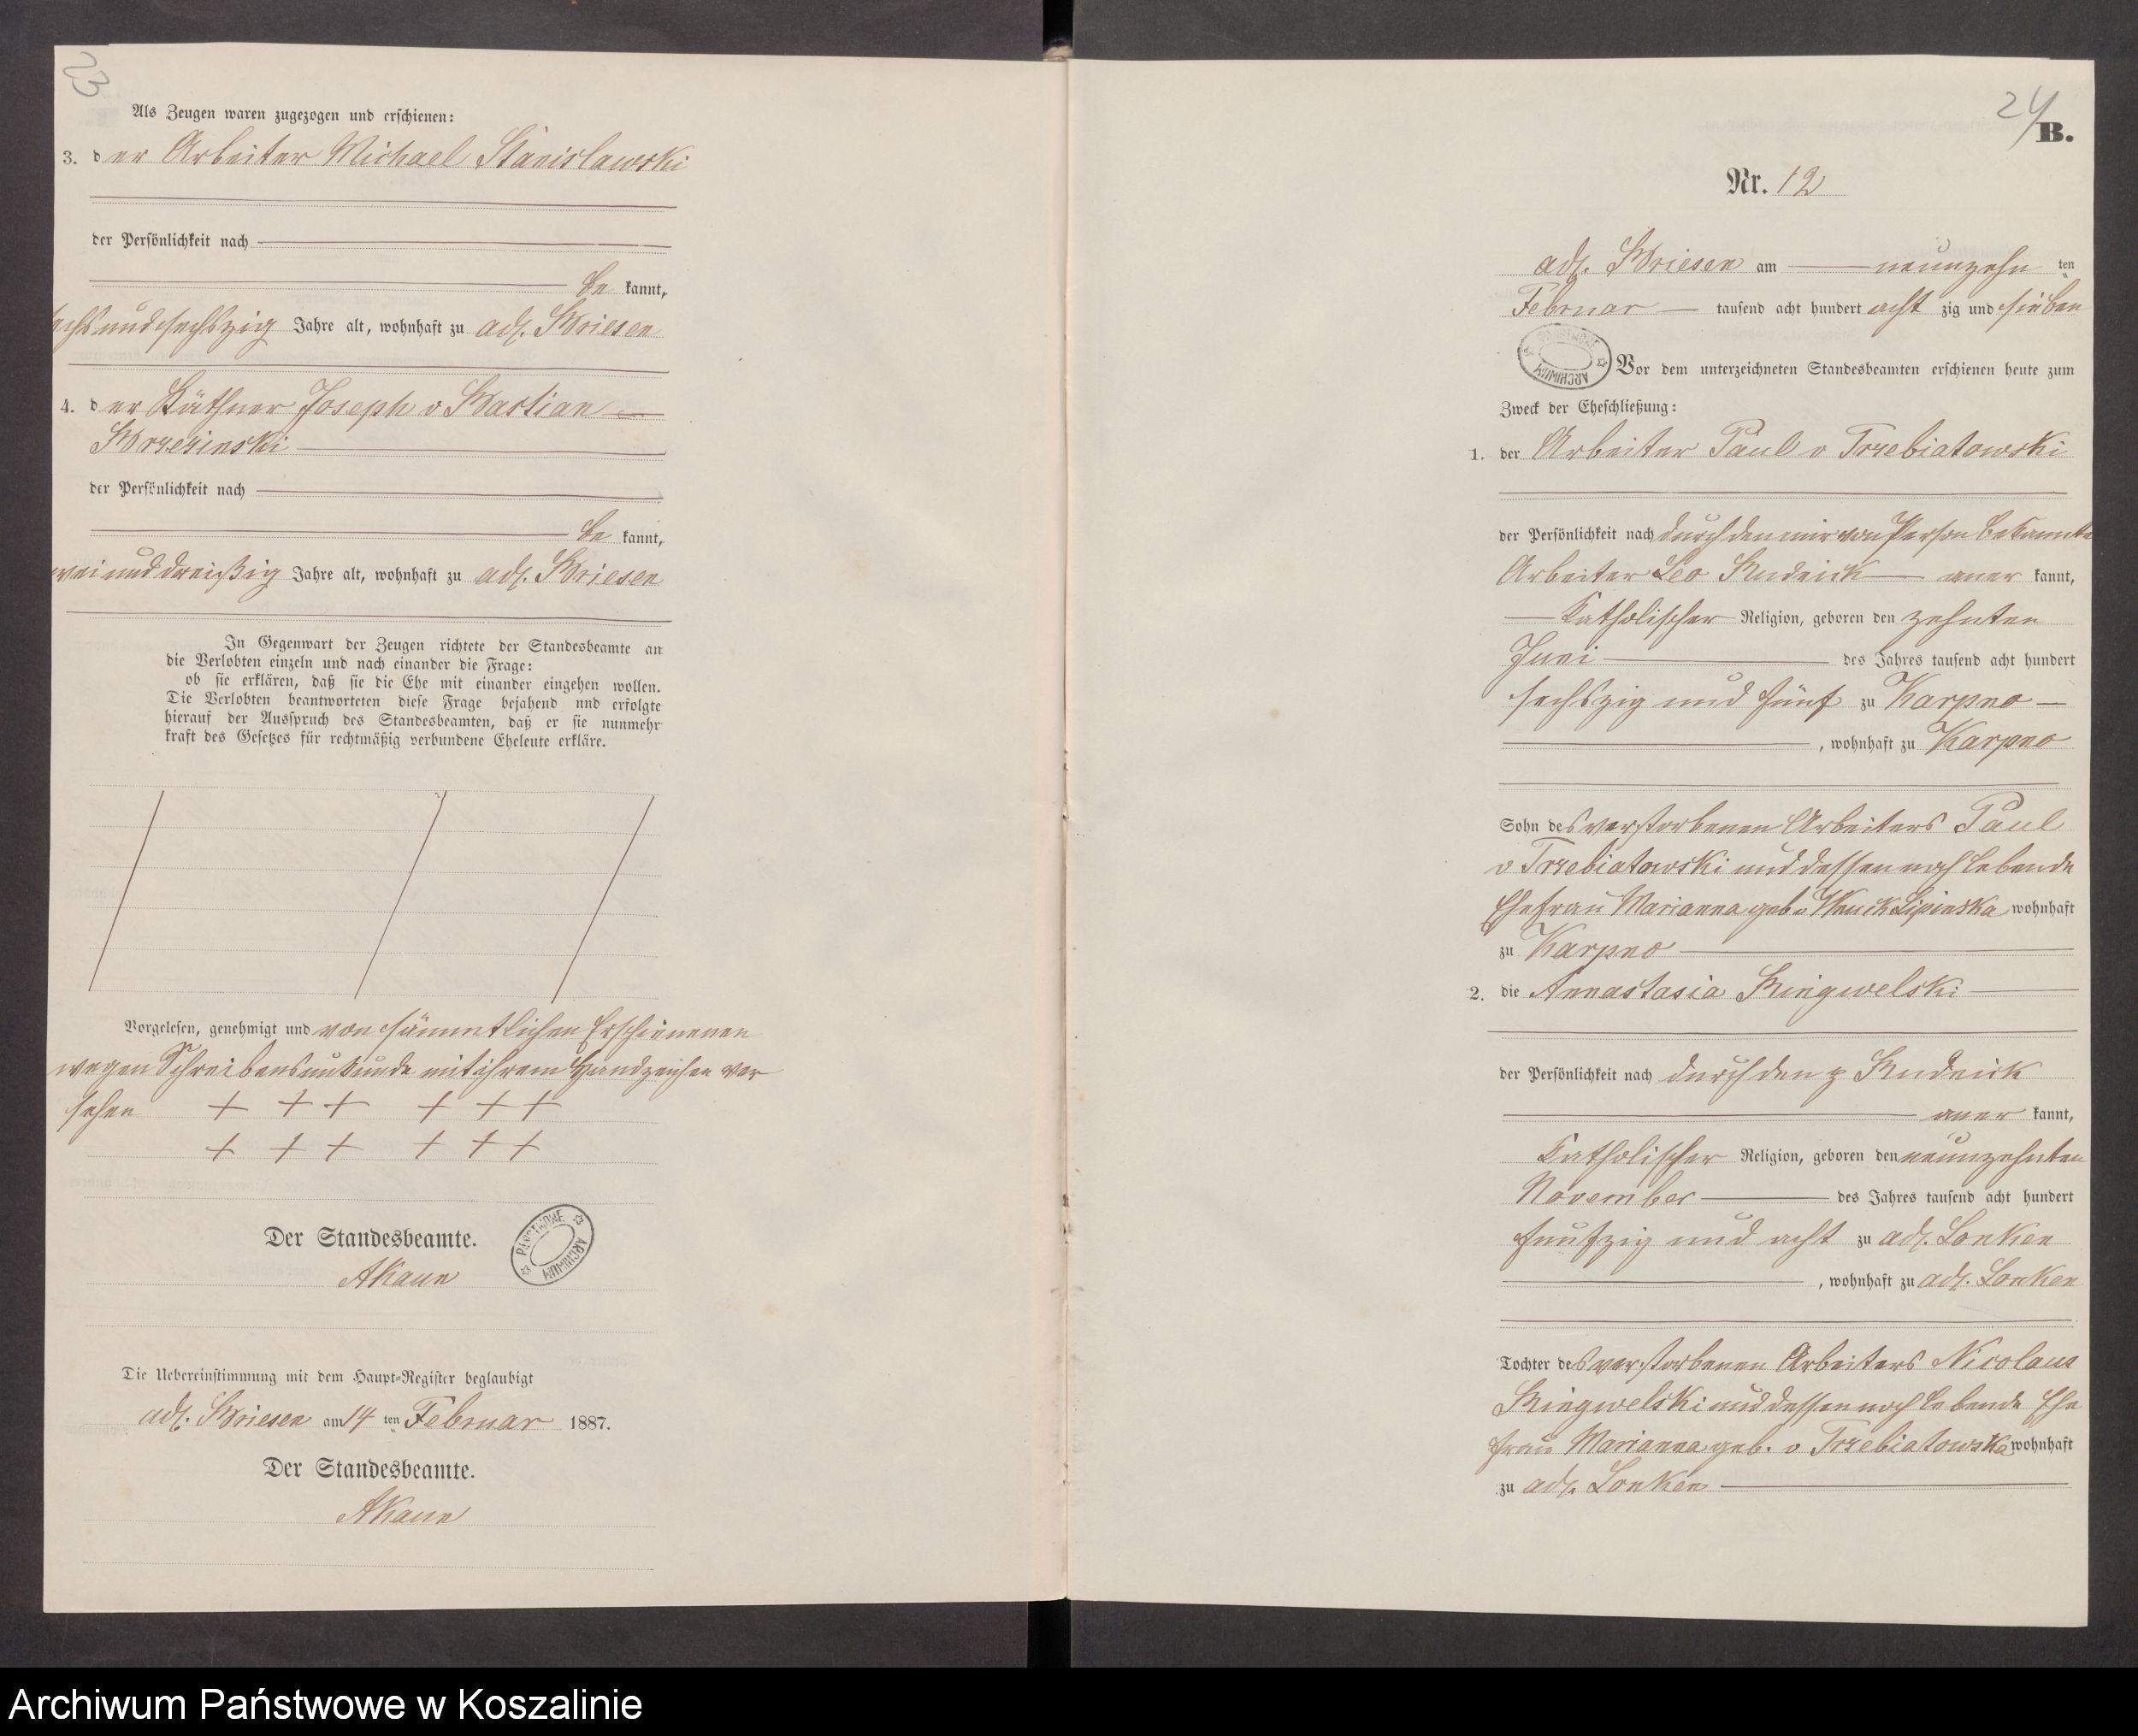 23
Als Zeugen waren zugezogen und erschienen:
3. der Arbeiter Michael Stanislawski
der Persönlichkeit nach
be kannt,
sechsundsechszig Jahre alt, wohnhaft zu adl. Briesen
4. der Käthner Joseph v Bastian
Wrzesinski
der Persönlichkeit nach
be kannt,
zweiunddreißig Jahre alt, wohnhaft zu adl. Briesen
In Gegenwart der Zeugen richtete der Standesbeamte an
die Verlobten einzeln und nach einander die Frage:
ob sie erklären, daß sie die Ehe mit einander eingehen wollen.
Die Verlobten beantworteten diese Frage bejahend und erfolgte
hierauf der Ausspruch des Standesbeamten, daß er sie nunmehr
kraft des Gesetzes für rechtmäßig verbundene Eheleute erkläre.
Vorgelesen, genehmigt und von sämmtlichen Erschienenen
wegen Schreibensunkunde mit ihrem Handzeichen ver
sehen + + + + + +
+ + + + + +
Der Standesbeamte.
AKaun
PAŃSTWOWE ARCHIWUM
Die Uebereinstimmung mit dem Haupt-Register beglaubigt
adl. Briesen am 14 ten Februar 1887.
Der Standesbeamte.
AKaun
24
B.
Nr. 12
adl. Briesen am neunzehn ten
Februar tausend acht hundert acht zig und sieben
PAŃSTWOWE ARCHIWUM
Vor dem unterzeichneten Standesbeamten erschienen heute zum
Zweck der Eheschließung:
1. der Arbeiter Paul v Trzebiatowski
der Persönlichkeit nach durch den mir von Person bekannten
Arbeiter Leo Rudnick aner kannt,
Katholischer Religion, geboren den zehnten
Juni des Jahres tausend acht hundert
sechszig und fünf zu Karpno
, wohnhaft zu Karpno
Sohn des verstorbenen Arbeiters Paul
v Trzebiatowski und dessen noch lebende
Ehefrau Marianna geb v Wnuck Lipinska wohnhaft
zu Karpno
2. die Annastasia Ringwelski
der Persönlichkeit nach durch den z Rudnick
aner kannt,
Katholischer Religion, geboren den neunzehnten
November des Jahres tausend acht hundert
funfzig und acht zu adl. Lonken
, wohnhaft zu adl. Lonken
Tochter des verstorbenen Arbeiters Nicolaus
Ringwelski und dessen noch lebende Ehe
frau Marianna geb. v Trzebiatowska wohnhaft
zu adl. Lonken
Archiwum Państwowe w Koszalinie